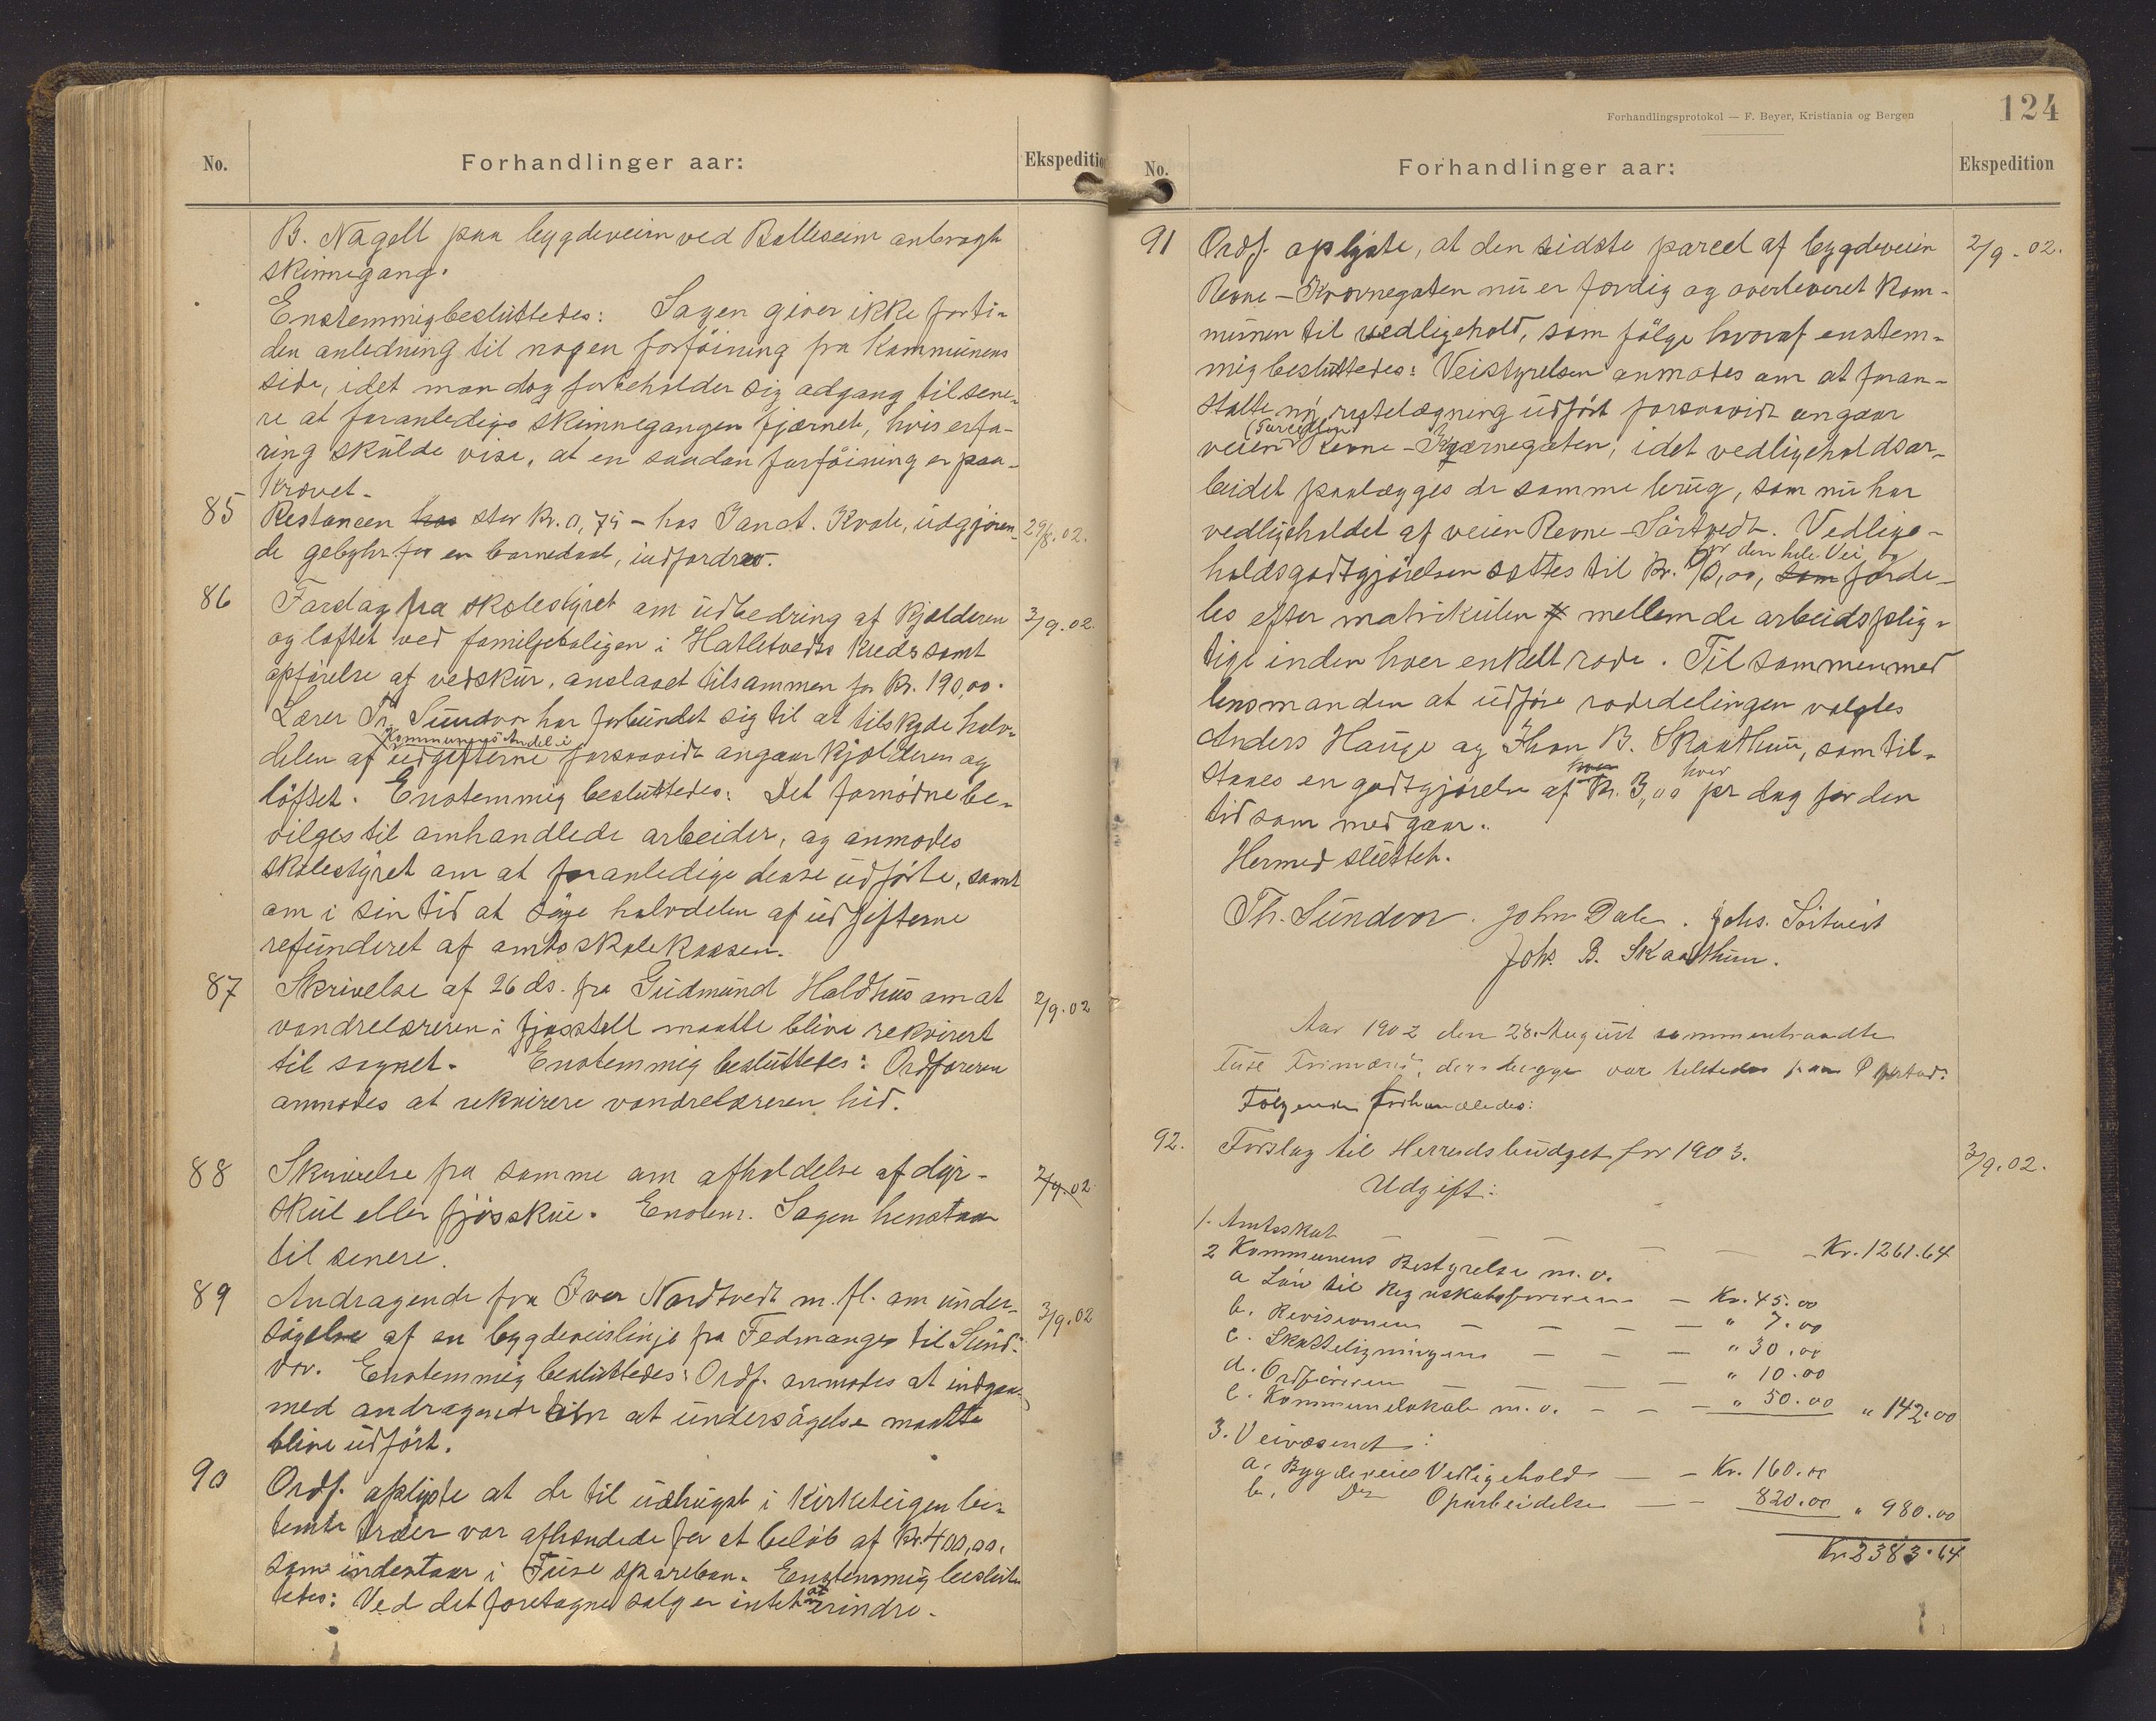 No.
Forhandlinger aar:
Ekspeditio
B. Nagell paa bygdeveien ved Balleseim anbragte
skinnegang.
Enstemmig besluttedes: Sagen giver ikke forti-
den anledning til nogen forföining fra Kommunens
side, idet man dog forbeholder sig adgang til sene-
re at foranledige skinnegangen fjærnet, hvis erfa-
ring skulde vise, at en saadan forföining er paa-
krævet.
85 Restancen hos stor Kr. 0,75 - hos Janat. Kvale, udgjören- 29/8.02.
de gebyhr for en barnedaab, indfordres.
86 Forslag fra skolestyret om udbedring af kjælderen 3/9.02.
og loftet ved familjeboligen i Hatletvedts kreds samt
opförelse af vedskur, anslaaet tilsammen for Kr. 190,00.
Lærer Tr. Sundvor har forbundet sig til at tilskyde halv-
Kommunens Andel i
delen af udgifterne forsaavidt angaar kjælderen og
löftet. Enstemmig besluttedes: Det fornødne be-
vilges til omhandlede arbeider, og anmodes
skolestyret om at foranledige disse udförte, samt
om i sin tid at söge halvdelen af udgifterne
refunderet af amtsskolekassen.
87 Skrivelse af 26 ds. fra Gudmund Haldhus om at 2/9.02
vandrelæreren i fjøsstell maatte blive rekvirert
til sognet. Enstemmig besluttedes: Ordföreren
anmodes at rekvirere vandrelæreren hid.
88 Skrivelse fra samme om afholdelse af dyr- 2/9.02
skue eller fjösskue. Enstem. Sagen henstaar
til senere.
89 Andragende fra Iver Nordtvedt m. fl. om under- 3/9.02
sögelse af en bygdeveislinje fra Fedmanger til Sund-
vor. Enstemmig besluttedes: Ordf. anmodes at indgaa
med andragende om at undersögelse maatte
blive udfört.
90 Ordf. oplyste at de til udhugst i Kirketeigen be-
stemte træer var afhændede for et beløb af Kr. 400,00,
som indestaar i Fuse spareban. Enstemmig beslut-
tedes: Ved det foretagne salg er intet at erindre.
124
Forhandlingsprotokol — F. Beyer, Kristiania og Bergen
No.
Forhandlinger aar:
Ekspedition
91 Ordf. oplyste, at den sidste parcel af bygdeveien 2/9.02.
Revne - Kværnegaten nu er færdig og overleveret Kom-
munen til vedligehold, som fölge hvoraf enstem-
mig besluttedes: Veistyrelsen anmodes om at foran-
stalte ny rodelægning udfört forsaavidt angaar
(Parcellen)
veien Revne - Kværnegaten, idet vedligeholdsar-
beidet paalægges de samme brug, som nu har
vedligeholdet af veien Revne - Sörtvedt. Vedlige-
for den hele Vei og
holdsgodtgjörelsen sættes til Kr. 90,00, som forde-
les efter matrikulen mellem de arbeidsplig-
tige inden hver enkelt rode. Til sammen med
lensmanden at udföre rodedelingen valgtes
Anders Hauge og Jhon B. Skaathun, som til-
hver hver
staaes en godtgjörelse af Kr. 3,00 pr dag for den
tid som medgaar.
Hermed sluttet.
Th. Sundvor. John Dale. Johs. Sörtveit
Johs. B. Skaathun.
Aar 1902 den 28. August sammentraadte
Fuse Formænd, der begge var tilstede paa
Følgende forhandledes:
92. Forslag til Herredsbudget for 1903. 3/9.02.
Udgift:
1. Amtsskat — — — — — Kr. 1261.64
2 Kommunens Bestyrelse m. v.
a Løn til Regnskabsføreren — Kr. 45.00
b. Revisionen — — — — " 7.00
c. Skatteligningen — — — " 30.00
d. Ordføreren — — — — " 10.00
e. Kommunelokale m. v. — — — " 50.00 " 142.00
3. Veivæsenet:
a. Bygdeveies Vedligehold — — Kr. 160.00
b. Do Oparbeidelse — — 820.00 " 980.00
Kr. 2383.64